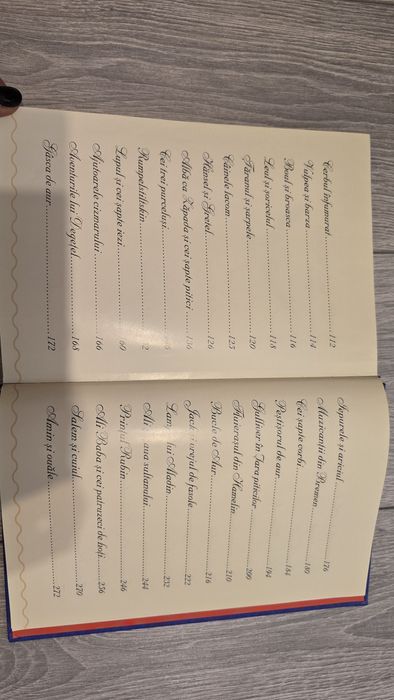 Cerbul înfumurat 112
Vulpea și barza 114
Boul și broasca 116
Leul și șoricelul 118
Țăranul și șarpele 120
Câinele lacom 125
Hänsel și Gretel 126
Albă ca Zăpada și cei șapte pitici 136
Cei trei purceluși
Rumpelstiltskin
Lupul și cei șapte iezi 60
Ajutoarele cizmarului 166
Aventurile lui Degețel 168
Gâsca de aur 172
Iepurele și ariciul 176
Muzicanții din Bremen 180
Cei șapte corbi 184
Peștișorul de aur 194
Guliver în Țara piticilor 200
Fluierașul din Hamelin 210
Bucle de Aur 216
Jack și vrejul de fasole 222
Lampa lui Aladin 232
Ali aua sultanului 244
Prințul Rubin 246
Ali Baba și cei patruzeci de hoți 256
Salem și cuiul 270
Amin și ouăle 272